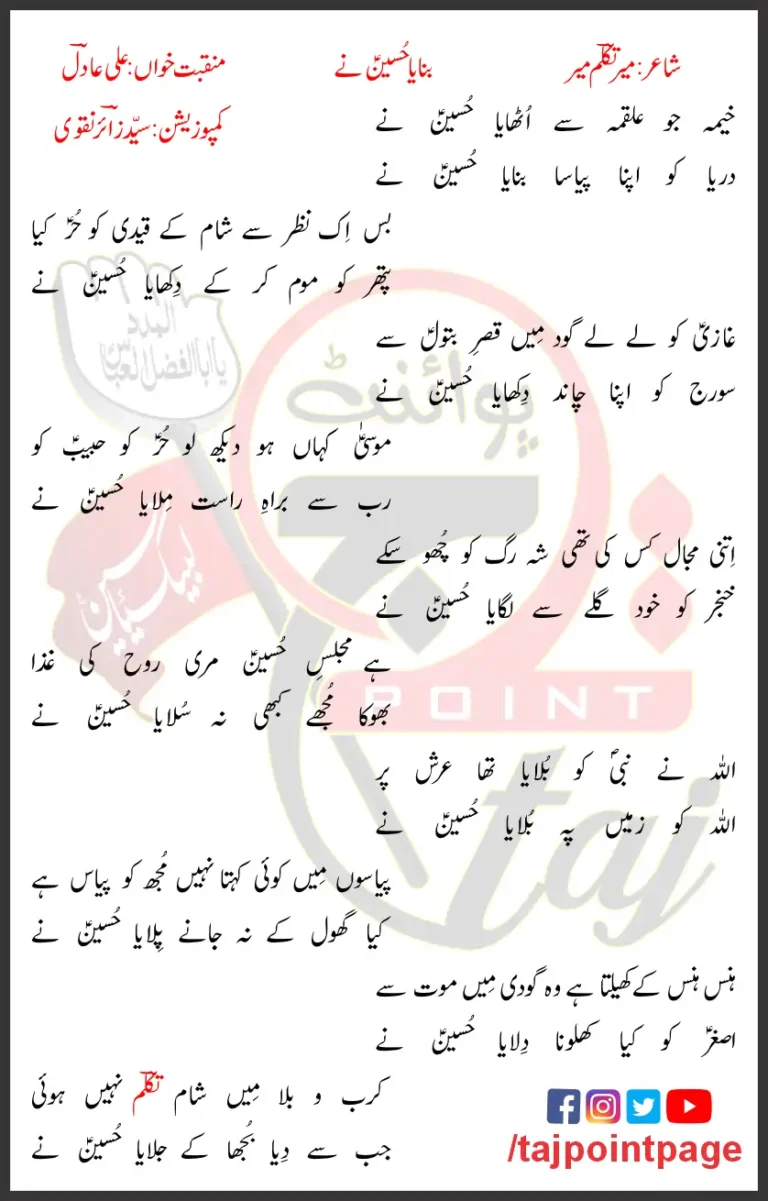 شاعر: میر تکلّم میر
بنایا حُسینؑ نے
منقبت خواں: علی عادل
کمپوزیشن: سیّد زائر نقوی
خیمہ جو علقمہ سے اُٹھایا حُسینؑ نے
دریا کو اپنا پیاسا بنایا حُسینؑ نے
بس اِک نظر سے شام کے قیدی کو حُرؑ کیا
پتھر کو موم کر کے دِکھایا حُسینؑ نے
غازیؑ کو لے لے گود مِیں قصرِ بتولؑ سے
سورج کو اپنا چاند دِکھایا حُسینؑ نے
موسیٰؑ کہاں ہو دیکھ لو حُرؑ کو حبیبؑ کو
رب سے براہِ راست مِلایا حُسینؑ نے
اِتنی مجال کس کی تھی شہ رگ کو چُھو سکے
خنجر کو خود گلے سے لگایا حُسینؑ نے
ہے مجلسِ حُسینؑ مری روح کی غذا
بھوکا مُجھے کبھی نہ سُلایا حُسینؑ نے
اللہ نے نبیؐ کو بُلایا تھا عرش پر
اللہ کو زمیں پہ بُلایا حُسینؑ نے
پیاسوں مِیں کوئی کہتا نہیں مُجھ کو پیاس ہے
کیا گھول کے نہ جانے پِلایا حُسینؑ نے
ہنس ہنس کے کھیلتا ہے وہ گودی مِیں موت سے
اصغرؑ کو کیا کھلونا دِلایا حُسینؑ نے
کرب و بلا مِیں شام تکلّم نہیں ہوئی
جب سے دِیا بُجھا کے جلایا حُسینؑ نے
المدد
یا ابا الفضل العباس
لبیک یا حسین
پوائنٹ
تاج
POINT
taj
/tajpointpage